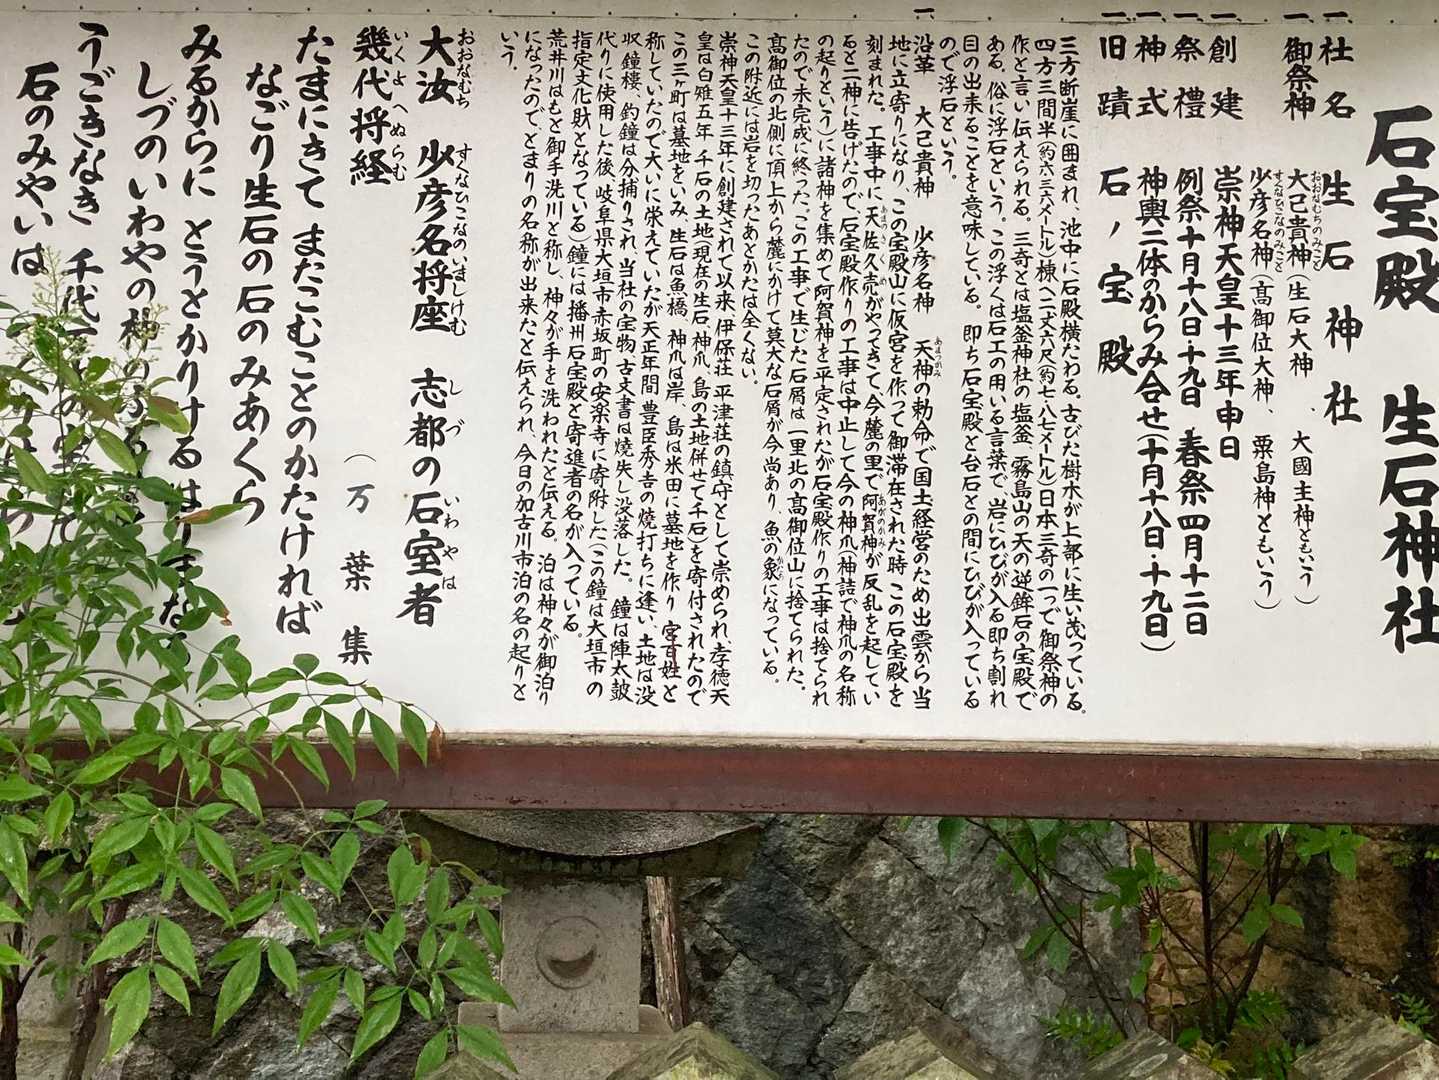 石宝殿 生石神社
一、社名 生石神社
一、御祭神 大己貴神(生石大神、大國主神ともいう)
おおなむちのみこと
少彦名神(高御位大神、粟島神ともいう)
すくなひこなのみこと
一、創建 崇神天皇十三年申日
一、祭禮 例祭十月十八日・十九日 春祭四月十二日
一、神式 神輿二体のからみ合せ(十月十八日・十九日)
一、旧蹟 石ノ宝殿
三方断崖に囲まれ、池中に石殿横たわる。古びた樹木が上部に生い茂っている。
四方三間半(約六・三六メートル)棟へ二丈六尺(約七・八七メートル)日本三奇の一つで御祭神の
作と言い伝えられる。三奇とは塩釜神社の塩釜、霧島山の天の逆鉾石の宝殿で
ある。俗に浮石という。この浮くは石工の用いる言葉で、岩にひびが入る即ち割れ
目の出来ることを意味している。即ち石宝殿と台石との間にひびが入っている
ので浮石という。
一、沿革 大己貴神 少彦名神 天神の勅命で国土経営のため出雲から当
あまつかみ
地に立寄りになり、この宝殿山に仮宮を作って御滞在された時 この石宝殿を
刻まれた。工事中に天佐久売がやってきて、今麓の里で阿賀神が反乱を起してい
あまのさくめ
あがのかみ
ると二神に告げたので、石宝殿作りの工事は中止して今の神爪(神詰で神爪の名称
の起りという)に諸神を集めて阿賀神を平定されたが石宝殿作りの工事は捨てられ
たので未完成に終った。この工事で生じた石屑は一里北の高御位山に捨てられた。
高御位の北側に頂上から麓にかけて莫大な石屑が今尚あり、魚の象になっている。
かたち
この附近には岩を切ったあとかたは全くない。
崇神天皇十三年に創建されて以来 伊保荘 平津荘の鎮守として崇められ、孝徳天
皇は白雉五年 千石の土地(現在の生石、神爪、島の土地併せて千石)を寄付されたので
この三ヶ町は墓地をいみ、生石は魚橋、神爪は岸、島は米田に墓地を作り 宮百姓と
称していたので大いに栄えていたが天正年間 豊臣秀吉の焼打ちに逢い、土地は没
収鐘楼、釣鐘は分捕りされ、当社の宝物、古文書は焼失し没落した。 鐘は陣太鼓
代りに使用した後、岐阜県大垣市赤坂町の安楽寺に寄附した(この鐘は大垣市の
指定文化財となっている)鐘には播州石宝殿と寄進者の名が入っている。
荒井川はもと御手洗川と称し、神々が手を洗われたと伝える、泊は神々が御泊り
になったので、とまりの名称が出来たと伝えられ、今日の加古川市泊の名の起りと
いう。
大汝 少彦名将座 志都の石室者
おおなむち すくなひこなのいましけむ しづ いわやは
幾代将経 (万葉集
いくよへぬらむ
たまにきて またこむことのかたければ
なごり生石の石のみあくら
みるからに とうとかりける
しづのいわやの神の
うごきなき 千代
石のみやいは